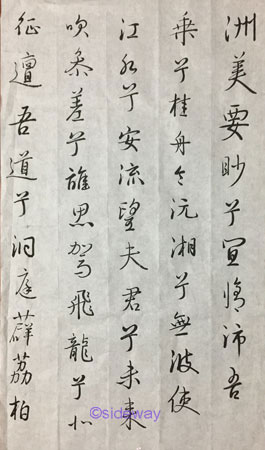 洲美要眇兮宜脩沛吾
乘兮桂舟令沅湘兮無波使
江水兮安流望夫君兮未来
吹參差兮誰思駕飛龍兮北
征邅吾道兮洞庭薜荔柏
©sideway